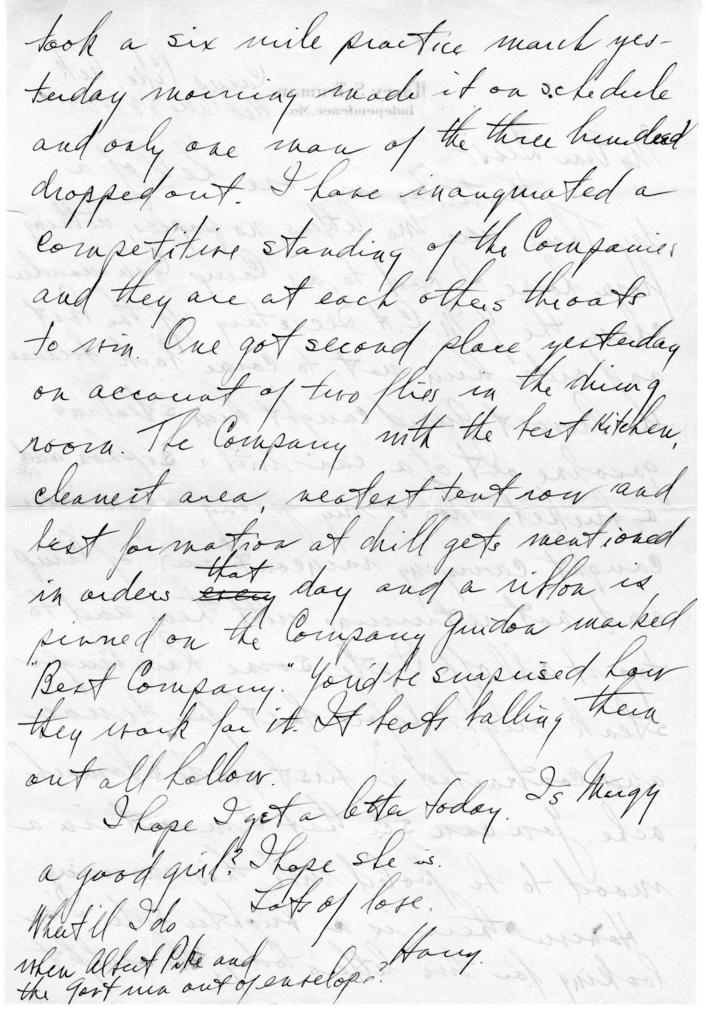 took a six mile practice march yes-
terday morning made it on schedule
and only one man of the three hundred
dropped out. I have inaugurated a
competitive standing of the Companies
and they are at each others throats
to win. One got second place yesterday
on account of two flies in the dining
room. The Company with the best Kitchen,
cleanest area, neatest tent row and
best formation at drill gets mentioned
that
in orders every day and a ribbon is
pinned on the Company guidon marked
"Best Company." You'd be surprised how
they work for it. It beats balling them
out all hollow.
I hope I get a letter today. Is Margy
a good girl? I hope she is.
Lots of love.
Harry.
What'll I do
when Albert Pike and
the Govt run out of envelops?
Harry S. Truman
Independence, Mo.